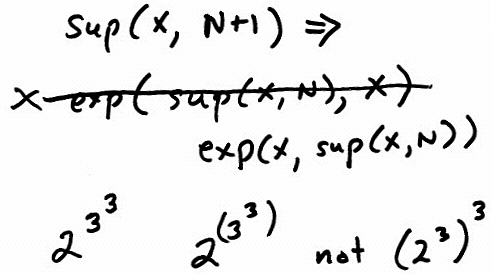 sup(x, N+1) ⇒
x exp( sup(x, N), x )
exp(x, sup(x,N))
2^3^3 2^(3^3) not (2^3)^3